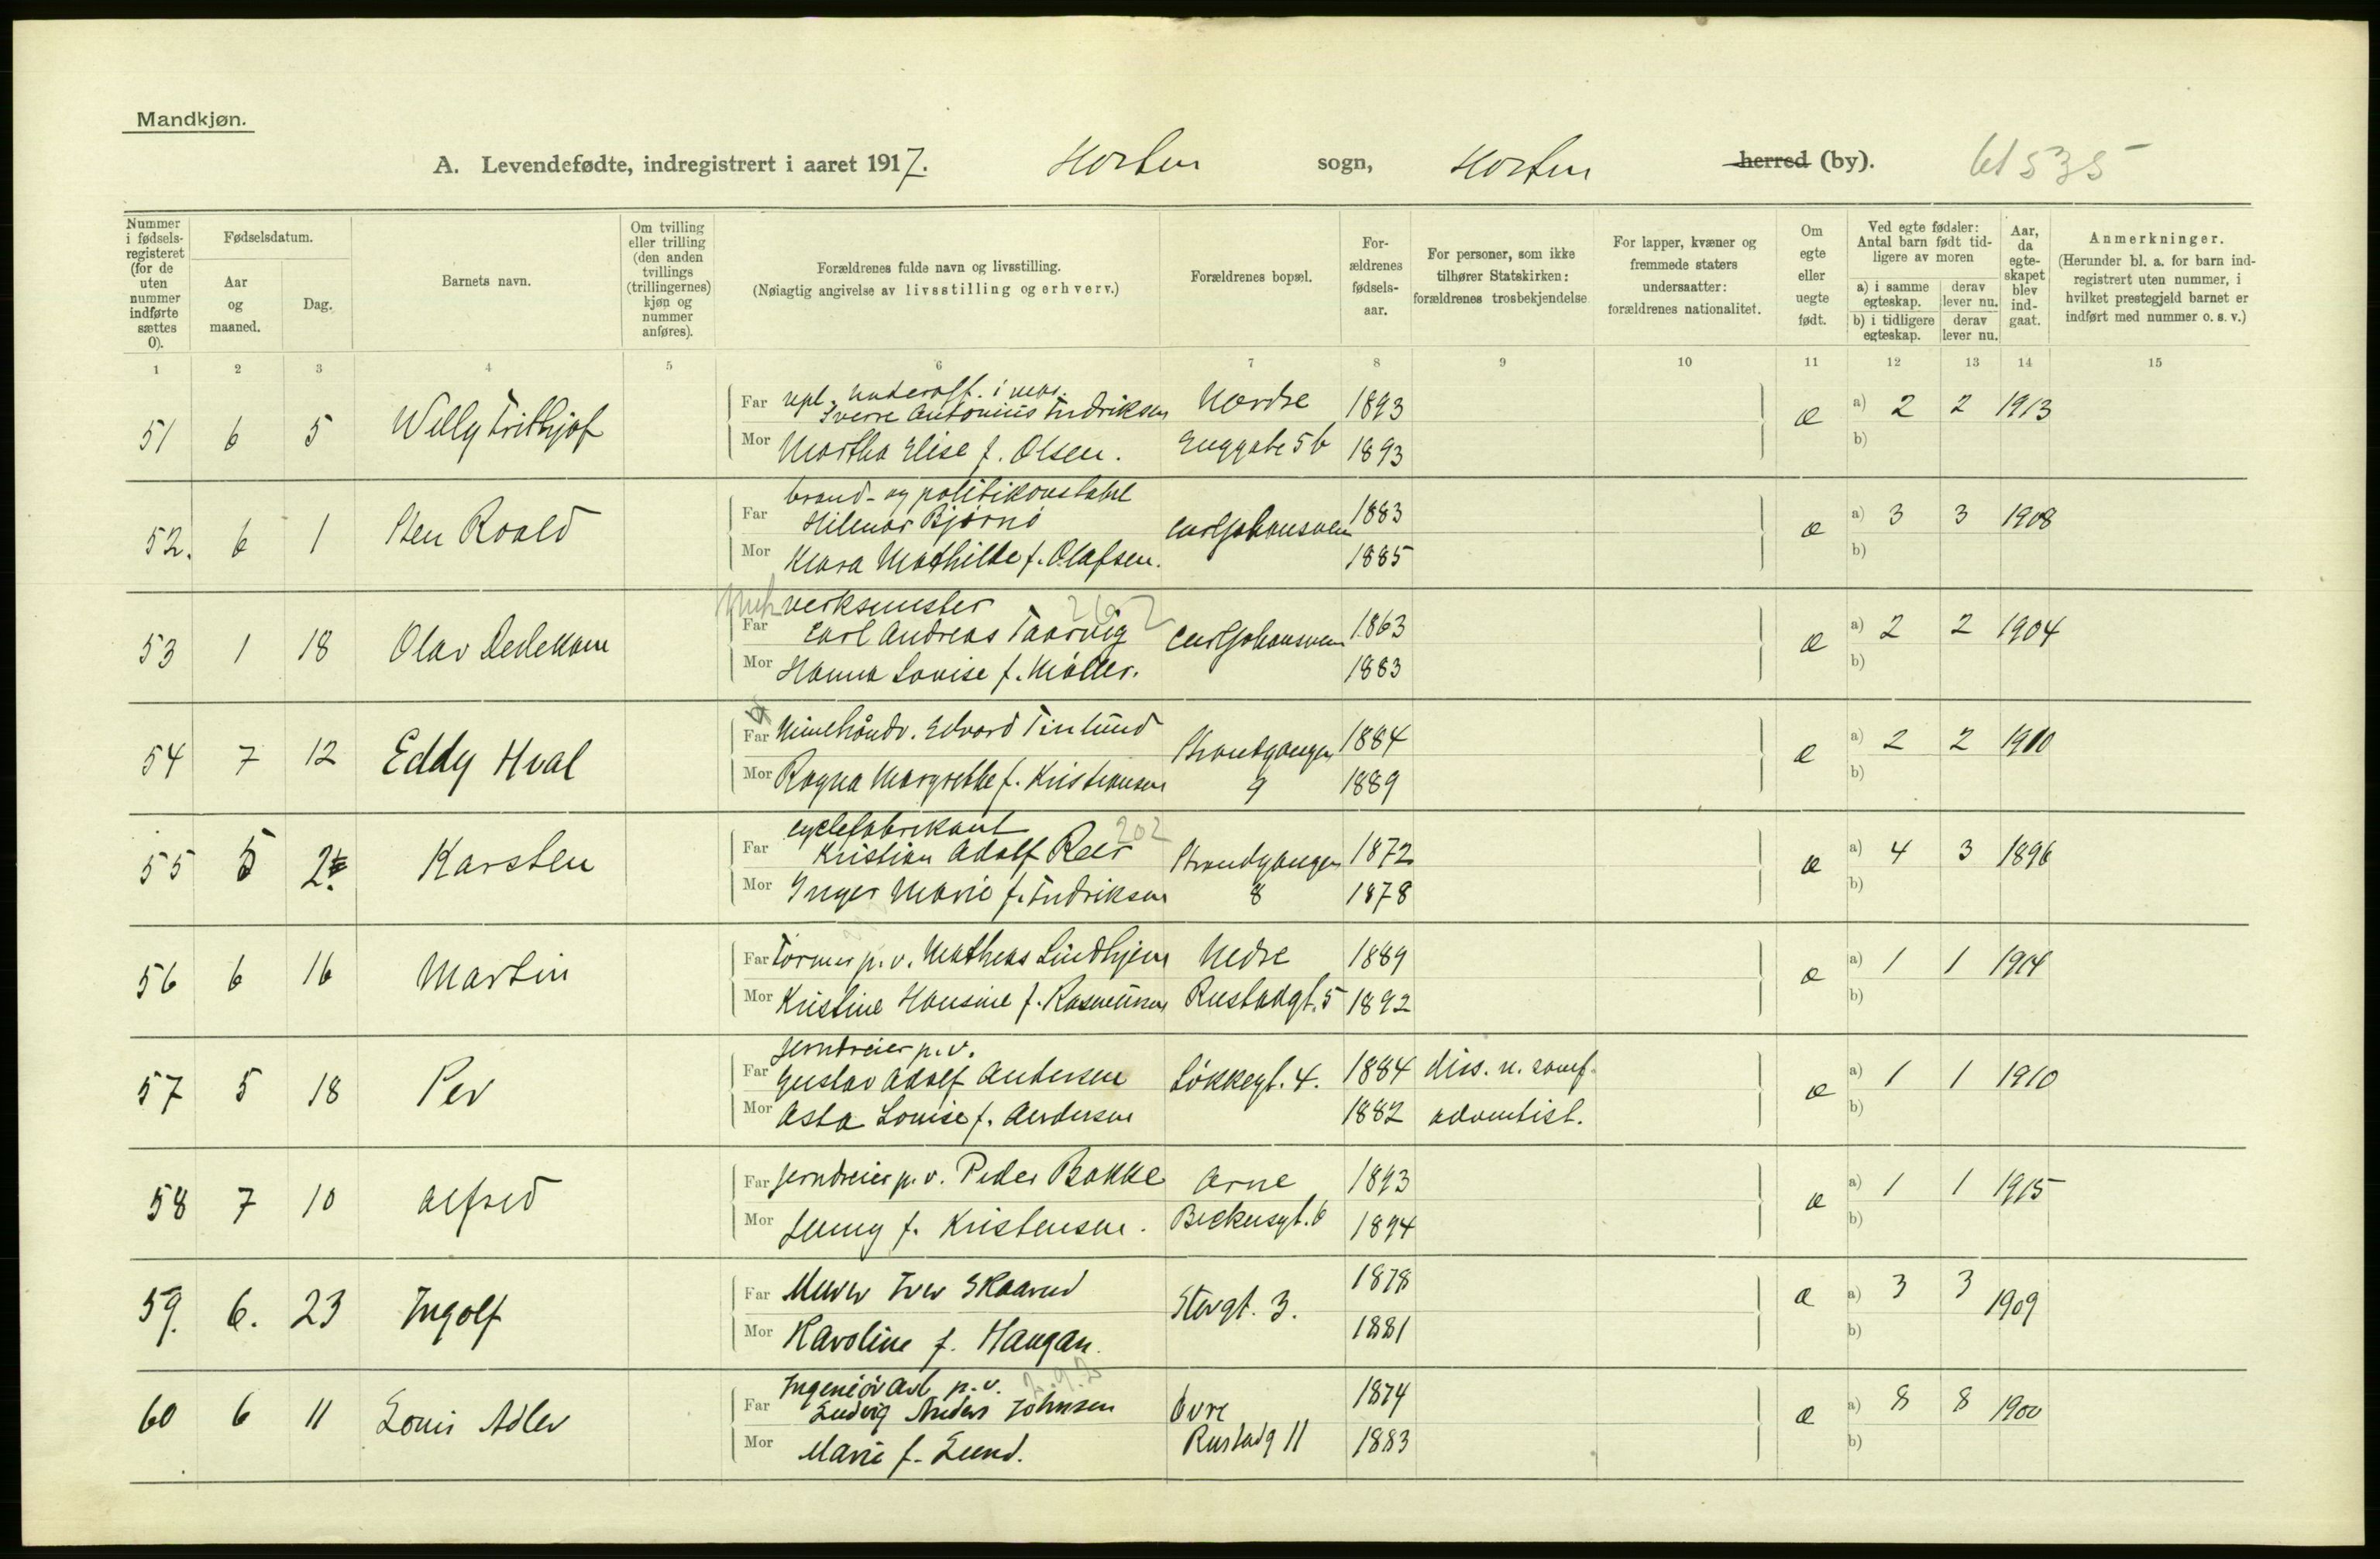 Mandkjøn.
A. Levendefødte, indregistrert i aaret 1917. Horten sogn, Horten herred (by). 61535
Nummer i fødselsregisteret (for de uten nummer indførte sættes 0).
Fødselsdatum.
Aar og maaned.
Dag.
Barnets navn.
Om tvilling eller trilling (den anden tvillings (trillingernes) kjøn og nummer anføres).
Forældrenes fulde navn og livsstilling.
(Nøiagtig angivelse av livsstilling og erhverv.)
Forældrenes bopæl.
Forældrenes fødselsaar.
For personer, som ikke tilhører Statskirken: forældrenes trosbekjendelse
For lapper, kvæner og fremmede staters undersaatter: forældrenes nationalitet.
Om egte eller uegte født.
Ved egte fødsler: Antal barn født tidligere av moren
a) i samme egteskap.
derav lever nu.
b) i tidligere egteskap.
derav lever nu.
Aar, da egteskapet blev indgaat.
Anmerkninger.
(Herunder bl. a. for barn indregistrert uten nummer, i hvilket prestegjeld barnet er indført med nummer o. s. v.)
1 2 3 4 5 6 7 8 9 10 11 12 13 14 15
51 6 5 Willy Frithjof
Far Sverre Antonius Fredriksen Nordre 1893
Mor Martha Elise f. Olsen. Enggate 5b 1893
æ a) 2 2 1913
b)
52. 6 1 Sten Roald
brand- og politikonstabel
Far Hilmar Bjørnø Carljohansvern 1883
Mor Klara Mathilde f. Olafsen. 1885
æ a) 3 3 1908
b)
53 1 18 Olav Dedekam
verksmester
Far Carl Andreas Taarvig Carljohansvern 1863
Mor Hanna Lovise f. Møller. 1883
æ a) 2 2 1904
b)
54 7 12 Eddy Hval
Far Minehåndv. Edvard Finlund Strandgangen 1884
Mor Ragna Margrethe f. Kristiansen 9 1889
æ a) 2 2 1910
b)
55 5 2
Karsten
cyclefabrikant 202
Far Kristian Adolf Reer Strandgangen 1872
Mor Inger Marie f. Fredriksen 8 1878
æ a) 4 3 1896
b)
56 6 16 Martin
Far Former p. v. Mathias Lindhjem Nedre 1889
Mor Kristine Hansine f. Rasmussen Rustadgt. 5 1892
æ a) 1 1 1914
b)
57 5 18 Per
Jerndreier p. v.
Far Gustav Adolf Andersen Løkkegt. 4. 1884 diss. u. samf.
Mor Asta Louise f. Andersen 1882 adventist.
æ a) 1 1 1910
b)
58 7 10 Alfred
Far Jerndreier p. v. Peder Bakke Arne 1893
Mor Jenny f. Kristensen. Bickersgt. 6 1894
æ a) 1 1 1915
b)
59. 6. 23 Ingolf
Far Murer Iver Skaarud Storgt. 3. 1878
Mor Karoline f. Haugan. 1881
æ a) 3 3 1909
b)
60 6 11 Louis Adler
Ingeniørarb. p. v.
Far Ludvig Anders Johnsen Øvre 1874
Mor Marie f. Lund. Rustadg 11 1883
æ a) 8 8 1900
b)